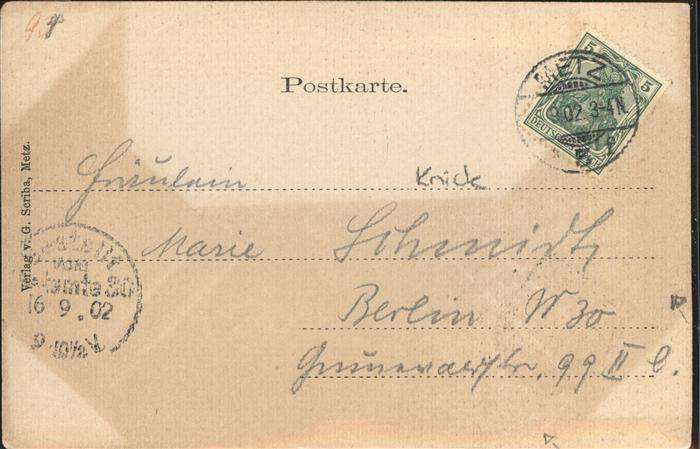 Postkarte.
METZ
02 3-4N
5 5
DEUTSCHES REICH
Verlag v. G. Scriba, Metz.
Fräulein Knick
Marie Schmidt
Berlin W 30
Grunewaldstr. 99 II l.
Bestellt
vom
Postamte 30
16 9. 02